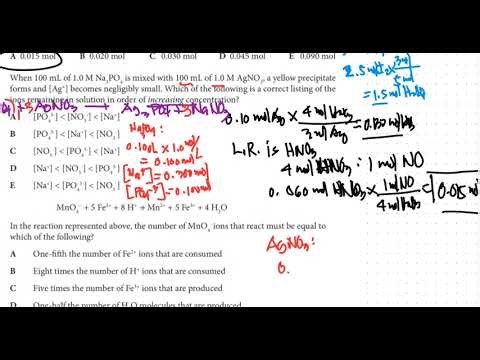 A 0.015 mol B 0.020 mol C 0.030 mol D 0.045 mol E 0.090 mol
When 100 mL of 1.0 M Na₃PO₄ is mixed with 100 mL of 1.0 M AgNO₃, a yellow precipitate
forms and [Ag⁺] becomes negligibly small. Which of the following is a correct listing of the
ions remaining in solution in order of increasing concentration?
A [PO₄³⁻] < [NO₃⁻] < [Na⁺]
B [PO₄³⁻] < [Na⁺] < [NO₃⁻]
C [NO₃⁻] < [PO₄³⁻] < [Na⁺]
D [Na⁺] < [NO₃⁻] < [PO₄³⁻]
E [Na⁺] < [PO₄³⁻] < [NO₃⁻]
0.100L × 1.0 mol/L
= 0.100 mol
[Na⁺] = 0.300 mol
[PO₄³⁻] = 0.100 mol
= 1.5 mol
0.10 mol Ag ×
3 mol Ag
L.R. is HNO₃
4 mol HNO₃ : 1 mol NO
0.060 mol HNO₃ × 1 mol NO
4 mol HNO₃
0.015 mol
MnO₄⁻ + 5 Fe²⁺ + 8 H⁺ → Mn²⁺ + 5 Fe³⁺ + 4 H₂O
In the reaction represented above, the number of MnO₄⁻ ions that react must be equal to
which of the following?
A One-fifth the number of Fe²⁺ ions that are consumed
B Eight times the number of H⁺ ions that are consumed
C Five times the number of Fe³⁺ ions that are produced
D One-half the number of H₂O molecules that are produced
AgNO₃:
0.